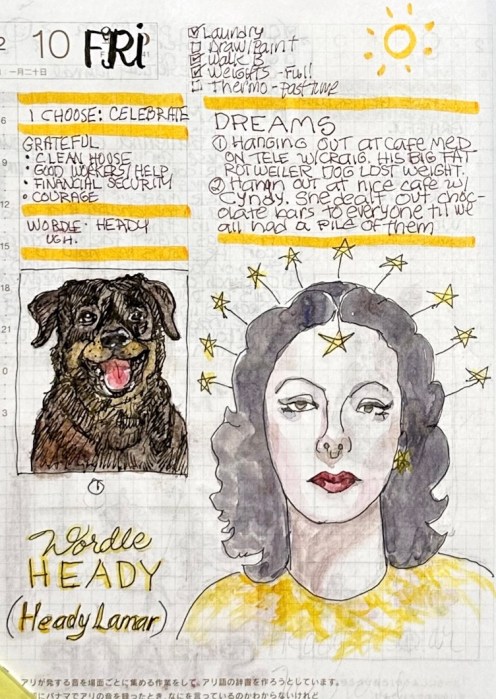 10 FRi
一月二十日
Laundry
Draw/Paint
Walk B
Weights - Full
Thermo - pasttime
6
I CHOOSE: CELEBRATE
GRATEFUL
• CLEAN HOUSE
• GOOD WORKERS/HELP
• FINANCIAL SECURITY
• COURAGE
9
12
WORDLE - HEADY
UGH.
15
DREAMS
① HANGING OUT AT CAFE MED
ON TELE W/CRAIG. HIS BIG FAT
ROTWEILER DOG LOST WEIGHT.
② Hangn out at nice cafe w/
Cyndy. She dealt out choc-
olate bars to everyone til we
all had a pile of them
18
21
0
3
①
Wordle
HEADY
(Heady Lamar)
アリが発する音を場面ごとに集める作業をして、アリ語の辞書を作ろうとしています。
にパナマでアリの音を録ったとき、なにを言っているのかわからないけれど